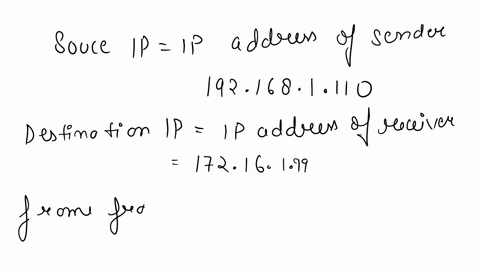 Souce IP = IP address of sender
192.168.1.110
Destination IP = IP address of receiver
= 172.16.1.99
frome fro